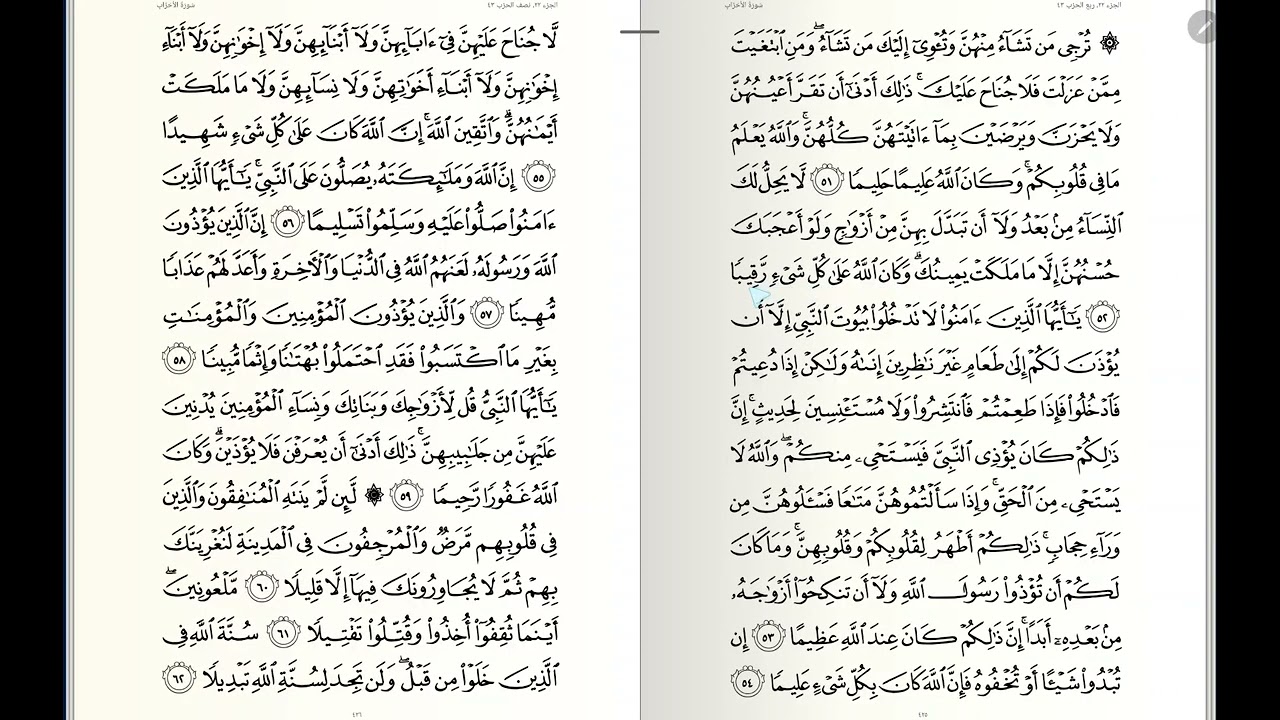 الجزء ٢٢، ربع الحزب ٤٣
سورة الأحزاب
۞ تُرْجِى مَن تَشَآءُ مِنْهُنَّ وَتُـْٔوِىٓ إِلَيْكَ مَن تَشَآءُ ۖ وَمَنِ ٱبْتَغَيْتَ
مِمَّنْ عَزَلْتَ فَلَا جُنَاحَ عَلَيْكَ ۚ ذَٰلِكَ أَدْنَىٰٓ أَن تَقَرَّ أَعْيُنُهُنَّ
وَلَا يَحْزَنَّ وَيَرْضَيْنَ بِمَآ ءَاتَيْتَهُنَّ كُلُّهُنَّ ۚ وَٱللَّهُ يَعْلَمُ
مَا فِى قُلُوبِكُمْ ۚ وَكَانَ ٱللَّهُ عَلِيمًا حَلِيمًا ٥١ لَّا يَحِلُّ لَكَ
ٱلنِّسَآءُ مِنۢ بَعْدُ وَلَآ أَن تَبَدَّلَ بِهِنَّ مِنْ أَزْوَٰجٍ وَلَوْ أَعْجَبَكَ
حُسْنُهُنَّ إِلَّا مَا مَلَكَتْ يَمِينُكَ ۗ وَكَانَ ٱللَّهُ عَلَىٰ كُلِّ شَىْءٍ رَّقِيبًا
٥٢ يَـٰٓأَيُّهَا ٱلَّذِينَ ءَامَنُوا۟ لَا تَدْخُلُوا۟ بُيُوتَ ٱلنَّبِىِّ إِلَّآ أَن
يُؤْذَنَ لَكُمْ إِلَىٰ طَعَامٍ غَيْرَ نَـٰظِرِينَ إِنَىٰهُ وَلَـٰكِنْ إِذَا دُعِيتُمْ
فَٱدْخُلُوا۟ فَإِذَا طَعِمْتُمْ فَٱنتَشِرُوا۟ وَلَا مُسْتَـْٔنِسِينَ لِحَدِيثٍ ۚ إِنَّ
ذَٰلِكُمْ كَانَ يُؤْذِى ٱلنَّبِىَّ فَيَسْتَحْىِۦ مِنكُمْ ۖ وَٱللَّهُ لَا
يَسْتَحْىِۦ مِنَ ٱلْحَقِّ ۚ وَإِذَا سَأَلْتُمُوهُنَّ مَتَـٰعًا فَسْـَٔلُوهُنَّ مِن
وَرَآءِ حِجَابٍ ۚ ذَٰلِكُمْ أَطْهَرُ لِقُلُوبِكُمْ وَقُلُوبِهِنَّ ۚ وَمَا كَانَ
لَكُمْ أَن تُؤْذُوا۟ رَسُولَ ٱللَّهِ وَلَآ أَن تَنكِحُوٓا۟ أَزْوَٰجَهُۥ
مِنۢ بَعْدِهِۦٓ أَبَدًا ۚ إِنَّ ذَٰلِكُمْ كَانَ عِندَ ٱللَّهِ عَظِيمًا ٥٣ إِن
تُبْدُوا۟ شَيْـًٔا أَوْ تُخْفُوهُ فَإِنَّ ٱللَّهَ كَانَ بِكُلِّ شَىْءٍ عَلِيمًا ٥٤
٤٢٥
الجزء ٢٢، نصف الحزب ٤٣
سورة الأحزاب
لَّا جُنَاحَ عَلَيْهِنَّ فِىٓ ءَابَآئِهِنَّ وَلَآ أَبْنَآئِهِنَّ وَلَآ إِخْوَٰنِهِنَّ وَلَآ أَبْنَآءِ
إِخْوَٰنِهِنَّ وَلَآ أَبْنَآءِ أَخَوَٰتِهِنَّ وَلَا نِسَآئِهِنَّ وَلَا مَا مَلَكَتْ
أَيْمَـٰنُهُنَّ ۗ وَٱتَّقِينَ ٱللَّهَ ۚ إِنَّ ٱللَّهَ كَانَ عَلَىٰ كُلِّ شَىْءٍ شَهِيدًا
٥٥ إِنَّ ٱللَّهَ وَمَلَـٰٓئِكَتَهُۥ يُصَلُّونَ عَلَى ٱلنَّبِىِّ ۚ يَـٰٓأَيُّهَا ٱلَّذِينَ
ءَامَنُوا۟ صَلُّوا۟ عَلَيْهِ وَسَلِّمُوا۟ تَسْلِيمًا ٥٦ إِنَّ ٱلَّذِينَ يُؤْذُونَ
ٱللَّهَ وَرَسُولَهُۥ لَعَنَهُمُ ٱللَّهُ فِى ٱلدُّنْيَا وَٱلْـَٔاخِرَةِ وَأَعَدَّ لَهُمْ عَذَابًا
مُّهِينًا ٥٧ وَٱلَّذِينَ يُؤْذُونَ ٱلْمُؤْمِنِينَ وَٱلْمُؤْمِنَـٰتِ
بِغَيْرِ مَا ٱكْتَسَبُوا۟ فَقَدِ ٱحْتَمَلُوا۟ بُهْتَـٰنًا وَإِثْمًا مُّبِينًا ٥٨
يَـٰٓأَيُّهَا ٱلنَّبِىُّ قُل لِّأَزْوَٰجِكَ وَبَنَاتِكَ وَنِسَآءِ ٱلْمُؤْمِنِينَ يُدْنِينَ
عَلَيْهِنَّ مِن جَلَـٰبِيبِهِنَّ ۚ ذَٰلِكَ أَدْنَىٰٓ أَن يُعْرَفْنَ فَلَا يُؤْذَيْنَ ۗ وَكَانَ
ٱللَّهُ غَفُورًا رَّحِيمًا ٥٩ ۞ لَّئِن لَّمْ يَنتَهِ ٱلْمُنَـٰفِقُونَ وَٱلَّذِينَ
فِى قُلُوبِهِم مَّرَضٌ وَٱلْمُرْجِفُونَ فِى ٱلْمَدِينَةِ لَنُغْرِيَنَّكَ
بِهِمْ ثُمَّ لَا يُجَاوِرُونَكَ فِيهَآ إِلَّا قَلِيلًا ٦٠ مَّلْعُونِينَ ۖ
أَيْنَمَا ثُقِفُوٓا۟ أُخِذُوا۟ وَقُتِّلُوا۟ تَقْتِيلًا ٦١ سُنَّةَ ٱللَّهِ فِى
ٱلَّذِينَ خَلَوْا۟ مِن قَبْلُ ۖ وَلَن تَجِدَ لِسُنَّةِ ٱللَّهِ تَبْدِيلًا ٦٢
٤٢٦